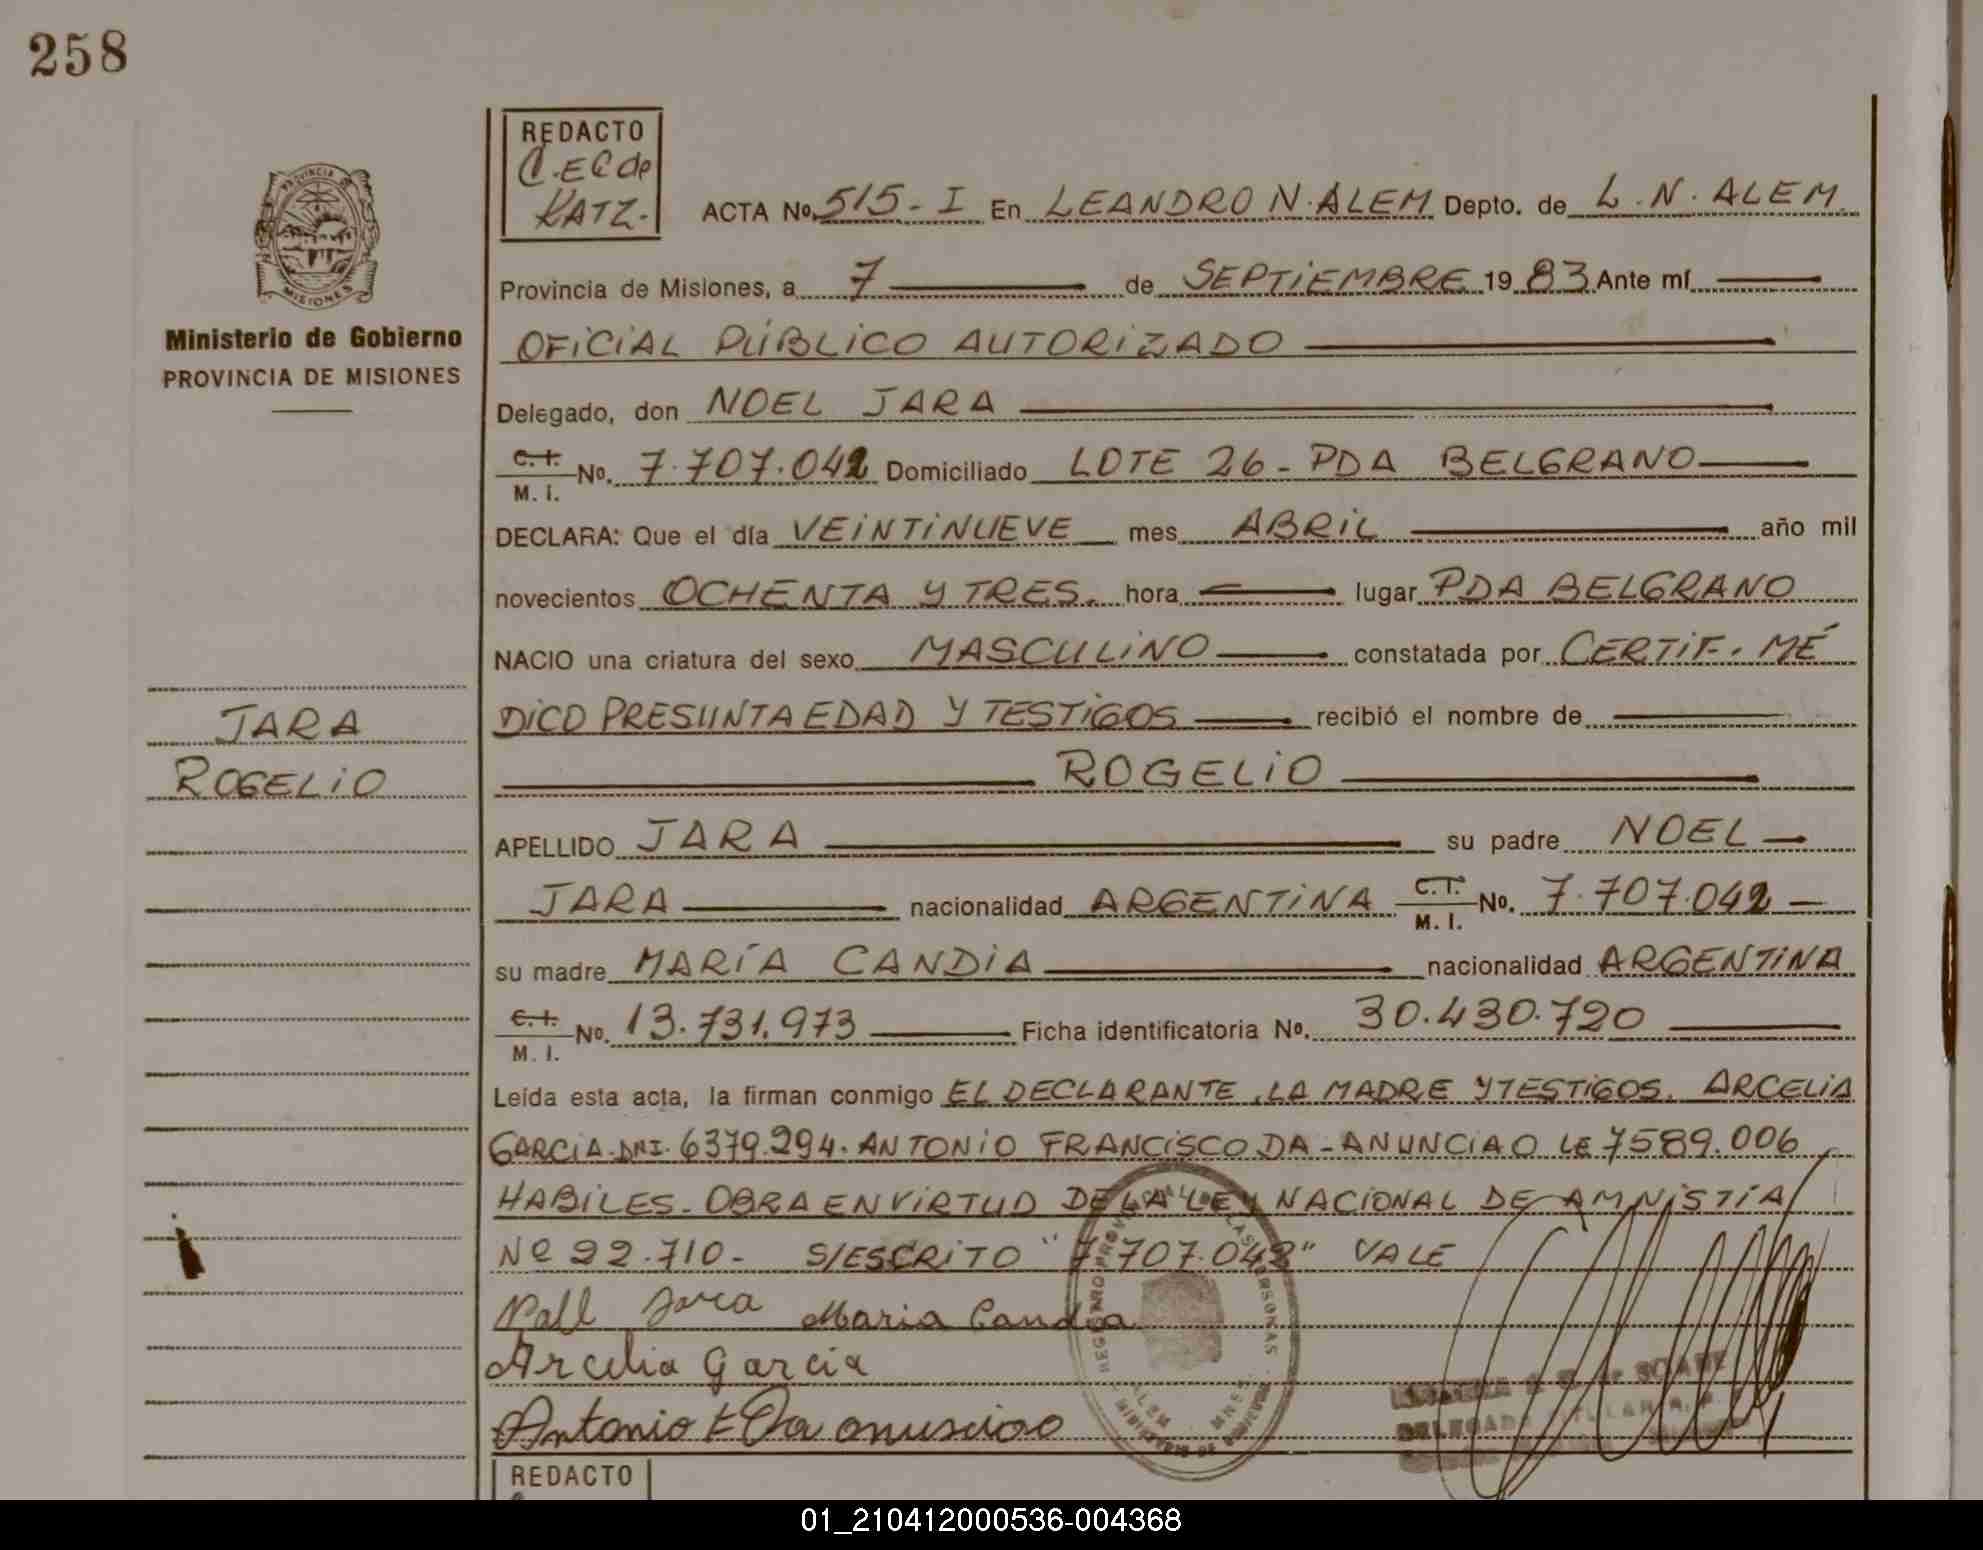 258
REDACTO
C.EC de
KATZ.-
PROVINCIA DE
MISIONES
Ministerio de Gobierno
PROVINCIA DE MISIONES
ACTA No. 515-I En LEANDRO N. ALEM Depto. de L.N. ALEM
Provincia de Misiones, a 7 de SEPTIEMBRE 19 83 Ante mí
OFICIAL PÚBLICO AUTORIZADO
Delegado, don NOEL JARA
C.I. M.I. No. 7.707.042 Domiciliado LOTE 26 - PDA BELGRANO
DECLARA: Que el día VEINTINUEVE mes ABRIL año mil
novecientos OCHENTA Y TRES. hora lugar PDA BELGRANO
NACIO una criatura del sexo MASCULINO constatada por CERTIF. MÉ
DICO PRESUNTA EDAD Y TESTIGOS recibió el nombre de
ROGELIO
JARA
ROGELIO
APELLIDO JARA su padre NOEL
JARA nacionalidad ARGENTINA C.I. M.I. No. 7.707.042
su madre MARÍA CANDIA nacionalidad ARGENTINA
C.I. M.I. No. 13.731.973 Ficha identificatoria No. 30.430.720
Leída esta acta, la firman conmigo EL DECLARANTE, LA MADRE Y TESTIGOS. ARCELIA
GARCIA. DNI. 6379.294. ANTONIO FRANCISCO DA-ANUNCIAO LE 7589.006
HABILES. OBRA EN VIRTUD DE LA LEY NACIONAL DE AMNISTÍA
Nº 22.710- S/ESCRITO "7.707.042" VALE
Jara Maria Candia
Arcelia Garcia
Antonio F Da anunciao
REGISTRO PROVINCIAL DE LAS PERSONAS
ALEM MNES.
MINISTERIO DE GOBIERNO
DELEGADA TITULAR
REDACTO
01_210412000536-004368